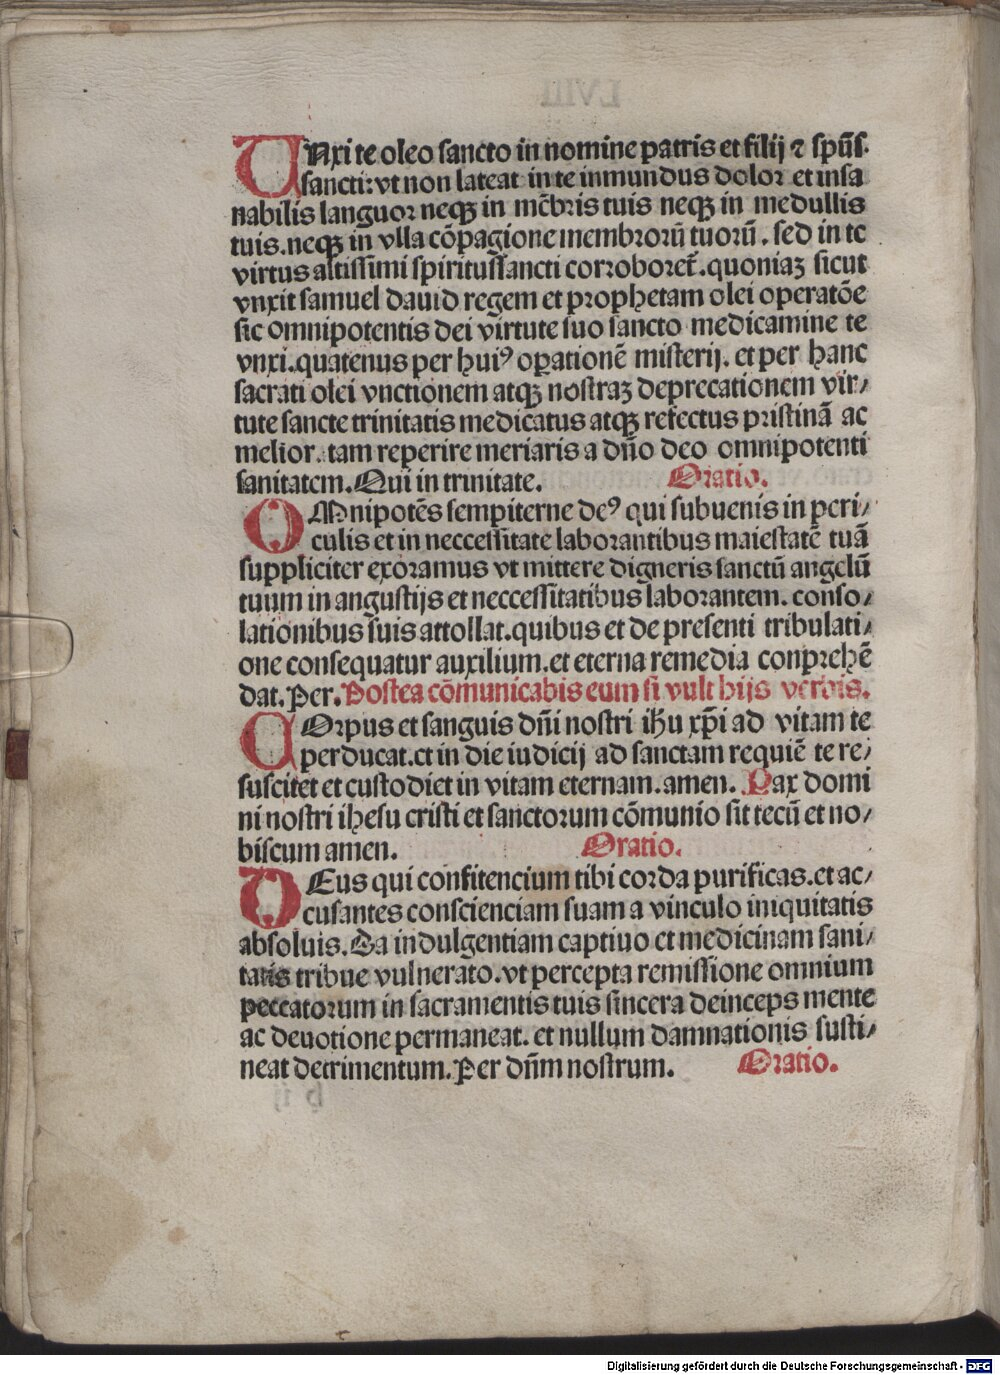 UNxi te oleo sancto in nomine patris et filij ⁊ spūs.
sancti: vt non lateat in te inmundus dolor et insa
nabilis languor neqꝫ in mēbris tuis neqꝫ in medullis
tuis. neqꝫ in vlla cōpagione membrorū tuorū. sed in te
virtus altissimi spiritussancti corroboret̄. quoniaꝫ sicut
vnxit samuel dauid regem et prophetam olei operatōe
sic omnipotentis dei virtute suo sancto medicamine te
vnxi. quatenus per huiꝰ oꝑationē misterij. et per hanc
sacrati olei vnctionem atqꝫ nostraꝫ deprecationem vir⸗
tute sancte trinitatis medicatus atqꝫ refectus pristinā ac
melior. tam reperire meriaris a dn̄o deo omnipotenti
sanitatem. Qui in trinitate. Oratio.
OMnipotēs sempiterne deꝰ qui subuenis in peri⸗
culis et in neccessitate laborantibus maiestatē tuā
suppliciter exoramus vt mittere digneris sanctū angelū
tuum in angustijs et neccessitatibus laborantem. conso⸗
lationibus suis attollat. quibus et de presenti tribulati⸗
one consequatur auxilium. et eterna remedia conprehē
dat. Per. Postea cōmunicabis eum si vult hijs verbis.
COrpus et sanguis dn̄i nostri ihu xp̄i ad vitam te
perducat. et in die iudicij ad sanctam requiē te re⸗
suscitet et custodiet in vitam eternam. amen. Pax domi
ni nostri ihesu cristi et sanctorum cōmunio sit tecū et no⸗
biscum amen. Oratio.
DEus qui confitencium tibi corda purificas. et ac⸗
cusantes conscienciam suam a vinculo iniquitatis
absoluis. Da indulgentiam captiuo et medicinam sani⸗
tatis tribue vulnerato. vt percepta remissione omnium
peccatorum in sacramentis tuis sincera deinceps mente
ac deuotione permaneat. et nullum damnationis susti⸗
neat detrimentum. Per dn̄m nostrum. Oratio.
Digitalisierung gefördert durch die Deutsche Forschungsgemeinschaft - DFG